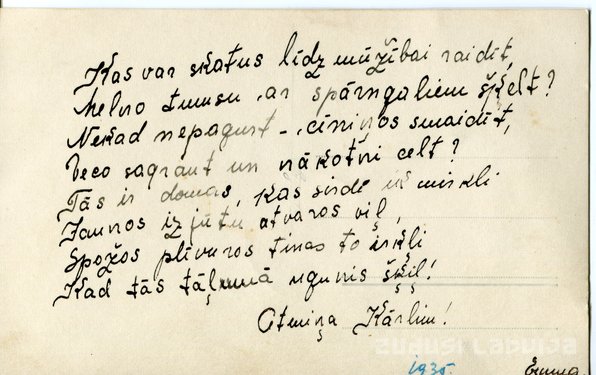 Kas var skatus līdz mūžībai raidīt,
Melno tumsu ar spārngaliem šķelt?
Nekad nepagurt - cīniņos smaidīt,
Veco sagraut un nākotni celt?
Tās ir domas, kas sirdī ik mirkli
Jaunos izjūtu atvaros viļ,
Spožos plīvuros tinas to
Kad tās tāļumā ugunis šķiļ!
Atmiņa Kārlim!
ZUDUSĪ LATVIJA
1935.
Emma.